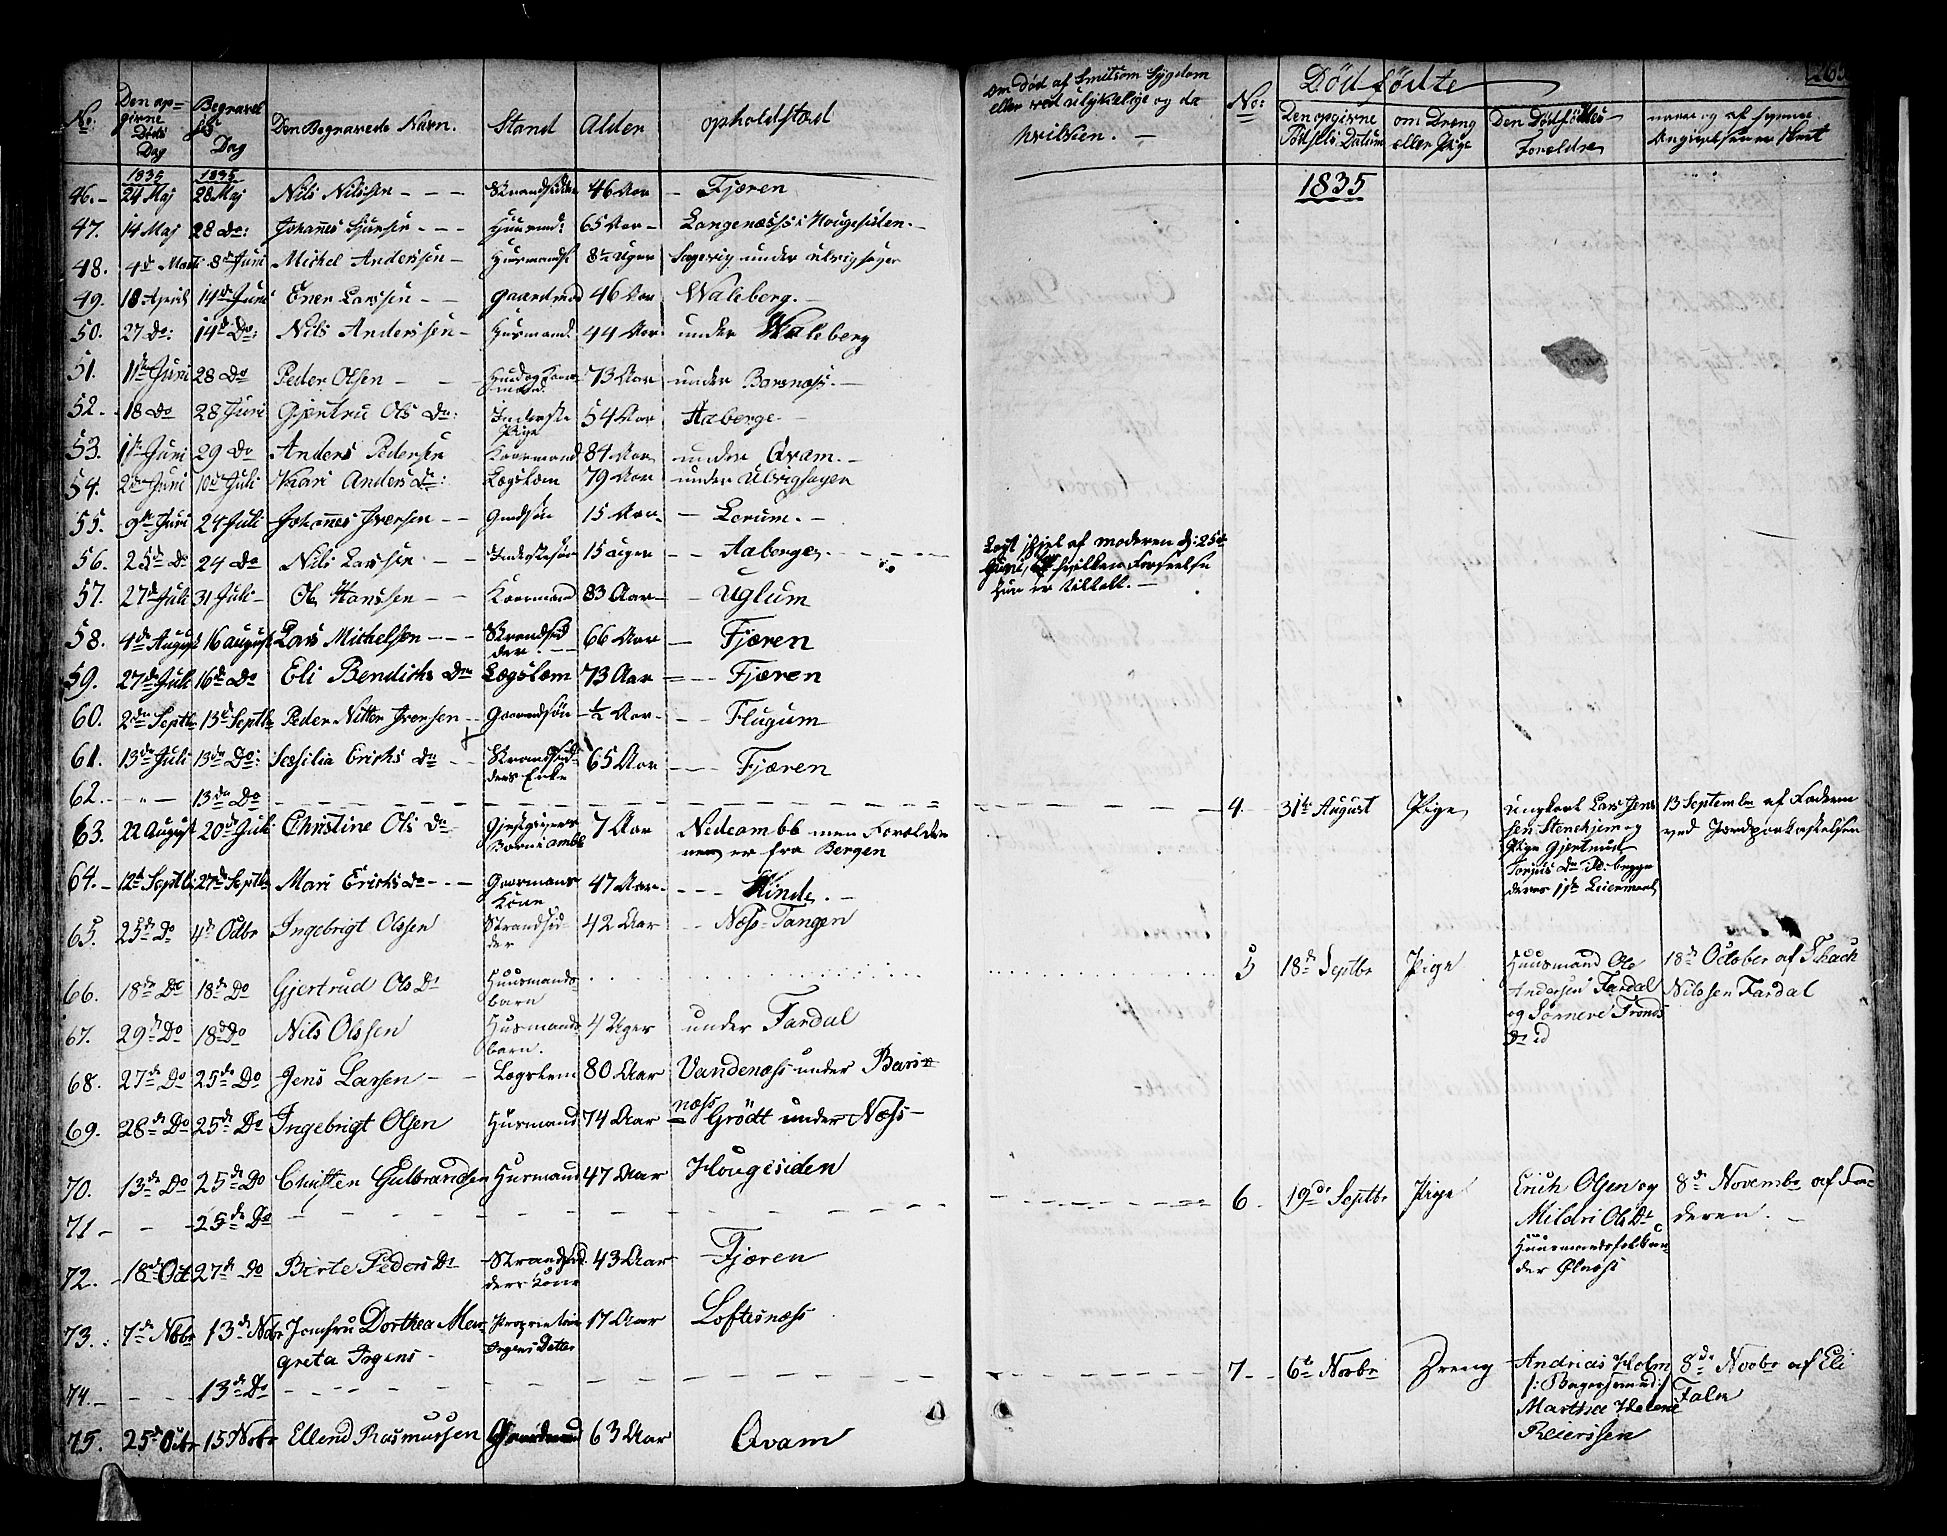 No: Den opgivne Døds Dag Begravelses Dag Den Begravede Navn. Stand Alder opholdstæd
1835 1835
46. 24 Maj 28 Maj Nils Nilssen Strandsidder 46 Aar Fjæren
47. 14 Maj 28 Do: Johanes Huusm: 65 Aar Langenæss i Hougesiden.
48. 4de 8de Juni Michel Anderssen Husmands 8½ Uger under Ulvigsager
49. 18 April 14de Juni Ener Larssen Gaardmd 46 Aar Waleberg.
50. 27 Do: 14de Do: Nils Anderssen Husmand 44 Aar under Waleberg
51. 11te Juni 28 Do Peder Olsen 73 Aar under Barsnæss.
52. 18 Do 28 Juni Gjertru Ols Dr: Inderste Pige 54 Aar Aaberge
53. Juni 29 Do Anders Pedersen Kaarmand 84 Aar under Qvam.
54. 2den Juni 10de Juli Kari Anders Dr: Lægslem 79 Aar under Ulvigsagen
55. 9de Juni 24 Juli Johanes Iversen Gmdsøn 15 Aar Lerum.
56. 25de Do 24 Do Nils Larssen Inderstesøn 15 uger Aaberge
57. 27de Juli 31 Juli Ole Hanssen Kaarmand 83 Aar Uglum
58. 4de August 16 august Lars Michelsen Strandsidder. 66 Aar Fjæren
59. 27de Juli 16de Do Eli Bendicks Dr Lægslem 73 Aar Fjæren
60. 2den Septbr 13de Septbr Peder Nitter Iversen Gaardsøn ½ Aar Flugum
61. 13de Juli 13de Do: Scesilia Erichs Dr Strandsidders Enke 65 Aar Fjæren
62. " 13de Do
63. 22 August 20de Juli Christine Ols Dr Gjestgivers Barn i Amble 7 Aar Nedeamb66 men Forældrenen er fra Bergen
64. 12te Septbr 27de Septbr Mari Erichs Dr Gaarmans Kone 47 Aar Hinde.
65. 25de Do 4de Octbr Ingebrigt Olssen Strandsidder 42 Aar Næss-Tangen
66. 18de Do 18de Do Gjertrud Ols Dr Huusmands barn
67. 29de Do 18de Do Nils Olssen Husmands barn. 4 Uger under Fardal
68. 27de Do 25de Do Jens Larsen Lægslem 80 Aar Vandenæss under Barsnæss
69. 28de Do 25de Do Ingebrigt Olsen Husmand 74 Aar Grödt under Næss
70. 13de Do 25de Do Christen Gulbrandsen Husmand 47 Aar Hougesiden
71 25de Do
72. 18de Oct 27de Do Birte Peders Dr Strandsidders Kone 43 Aar Fjæren
73. 7de Nvbr 13de Nvbr Jomfru Dorthea Margreta Irgens Proprietair Irgens Datter 17 Aar Loftesnæss
74. 13de Do
75. 25de Octbr 15 Novbr Ellend Rasmussen Gaardmand 63 Aar Qvam
om Død af Smitsom Sygdom
eller ved ulykkelige og da
hvilken.
Lagt ihjel af moderen d: 25de
Juni, for hvilken Forseelse
hun er tiltalt.
265
Dödfödte
No: Den opgivne Födsels Datum om Dreng eller Pige Den Dødfødtes Forældre naar og af hvem Angivelsen er skeet
1835
4 31te August Pige Ungkarl Lars Jenssen Stenehjem og Pige Gjertrud Dr begge deres 1ste Leiermaal 13 Septembr af Faderen ved
5 18de Septbr Pige Huusmand Ole Andersen Fardal og Sønneve Tronds Dr id 18de October af Nilssen Fardal
6 19de Septbr Pige Erich Olsen og Mildri Ols Dr Huusmandsfolk under Ølnæss 8de Novembr af Faderen.
7 6te Novbr Dreng Andreas Holm Marthe Helene Peterssen 8de Novbr af Eli Falen